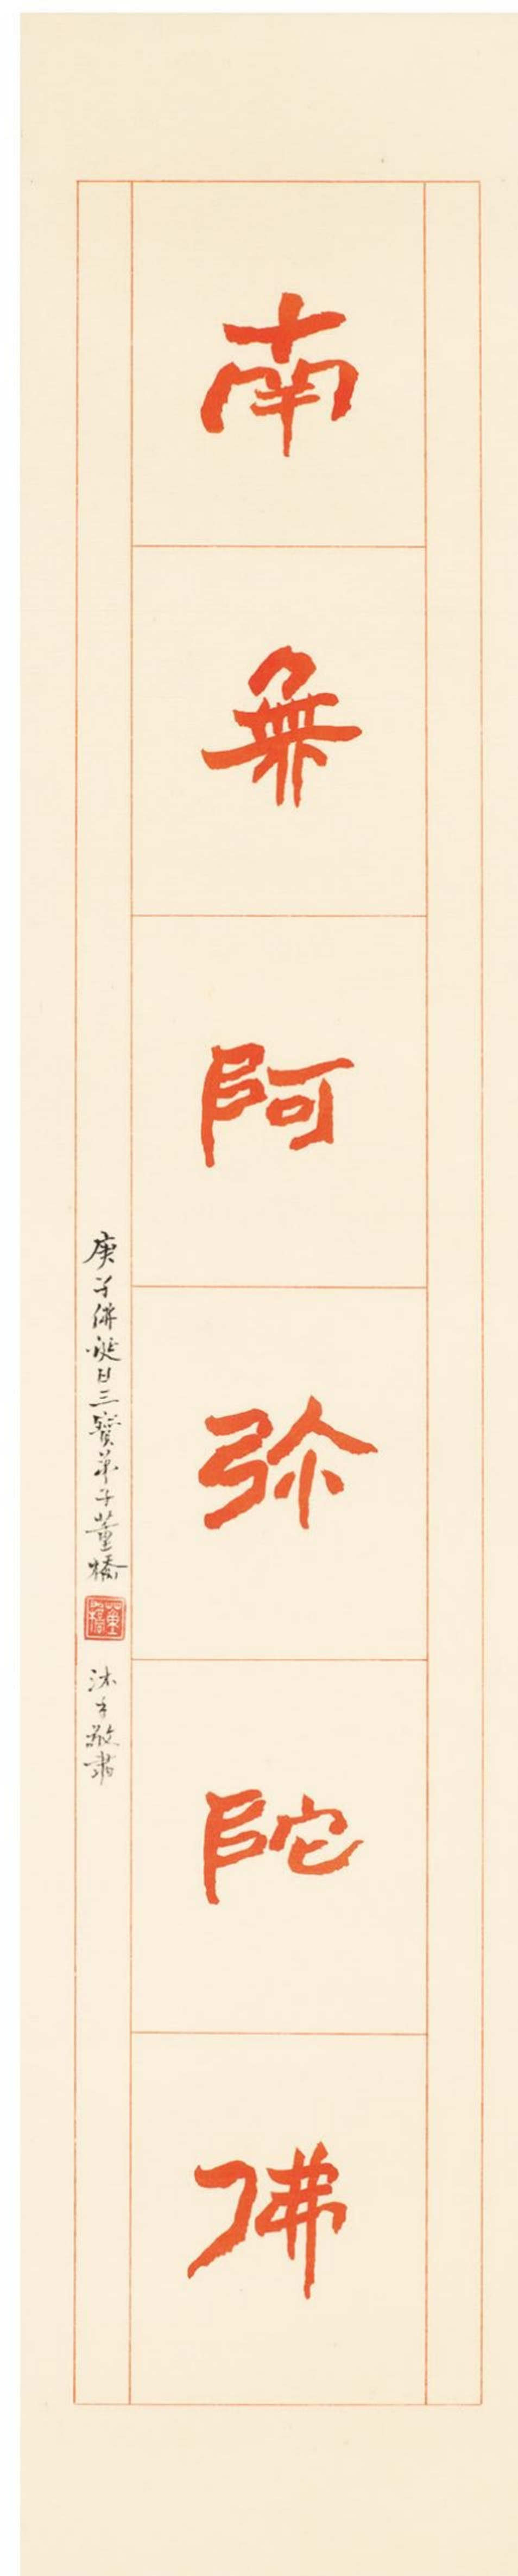 南無阿弥陀佛
庚子佛誕日三寶弟子董橋
董橋
沐手敬書